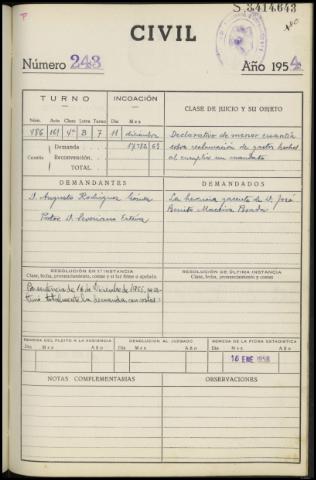 S 3.414.643
CIVIL
Número 243
Año 1954
TURNO
INCOACIÓN
CLASE DE JUICIO Y SU OBJETO
Núm. Auto Clase Letra Turno Día Mes
486 161 4ª B 7 11 diciembre
Declarativo de menor cuantía
sobre reclamación de gastos hechos
al cumplir un mandato
Demanda
Cuantía Reconvención
TOTAL
DEMANDANTES
DEMANDADOS
D. Augusto Rodríguez
La herencia yacente de D. José
Benito
Pdor D. Severiano
RESOLUCIÓN EN 1ª INSTANCIA
Clase, fecha, pronunciamiento, costas y si fué firme o apelada
RESOLUCIÓN DE ÚLTIMA INSTANCIA
Clase, fecha, pronunciamiento y costas
totalmente la demanda, con costas
REMESA DEL PLEITO A LA AUDIENCIA
DEVOLUCIÓN AL JUZGADO
REMESA DE LA FICHA ESTADÍSTICA
Día Mes Año
Día Mes Año
Día Mes Año
16 ENE 1956
NOTAS COMPLEMENTARIAS
OBSERVACIONES